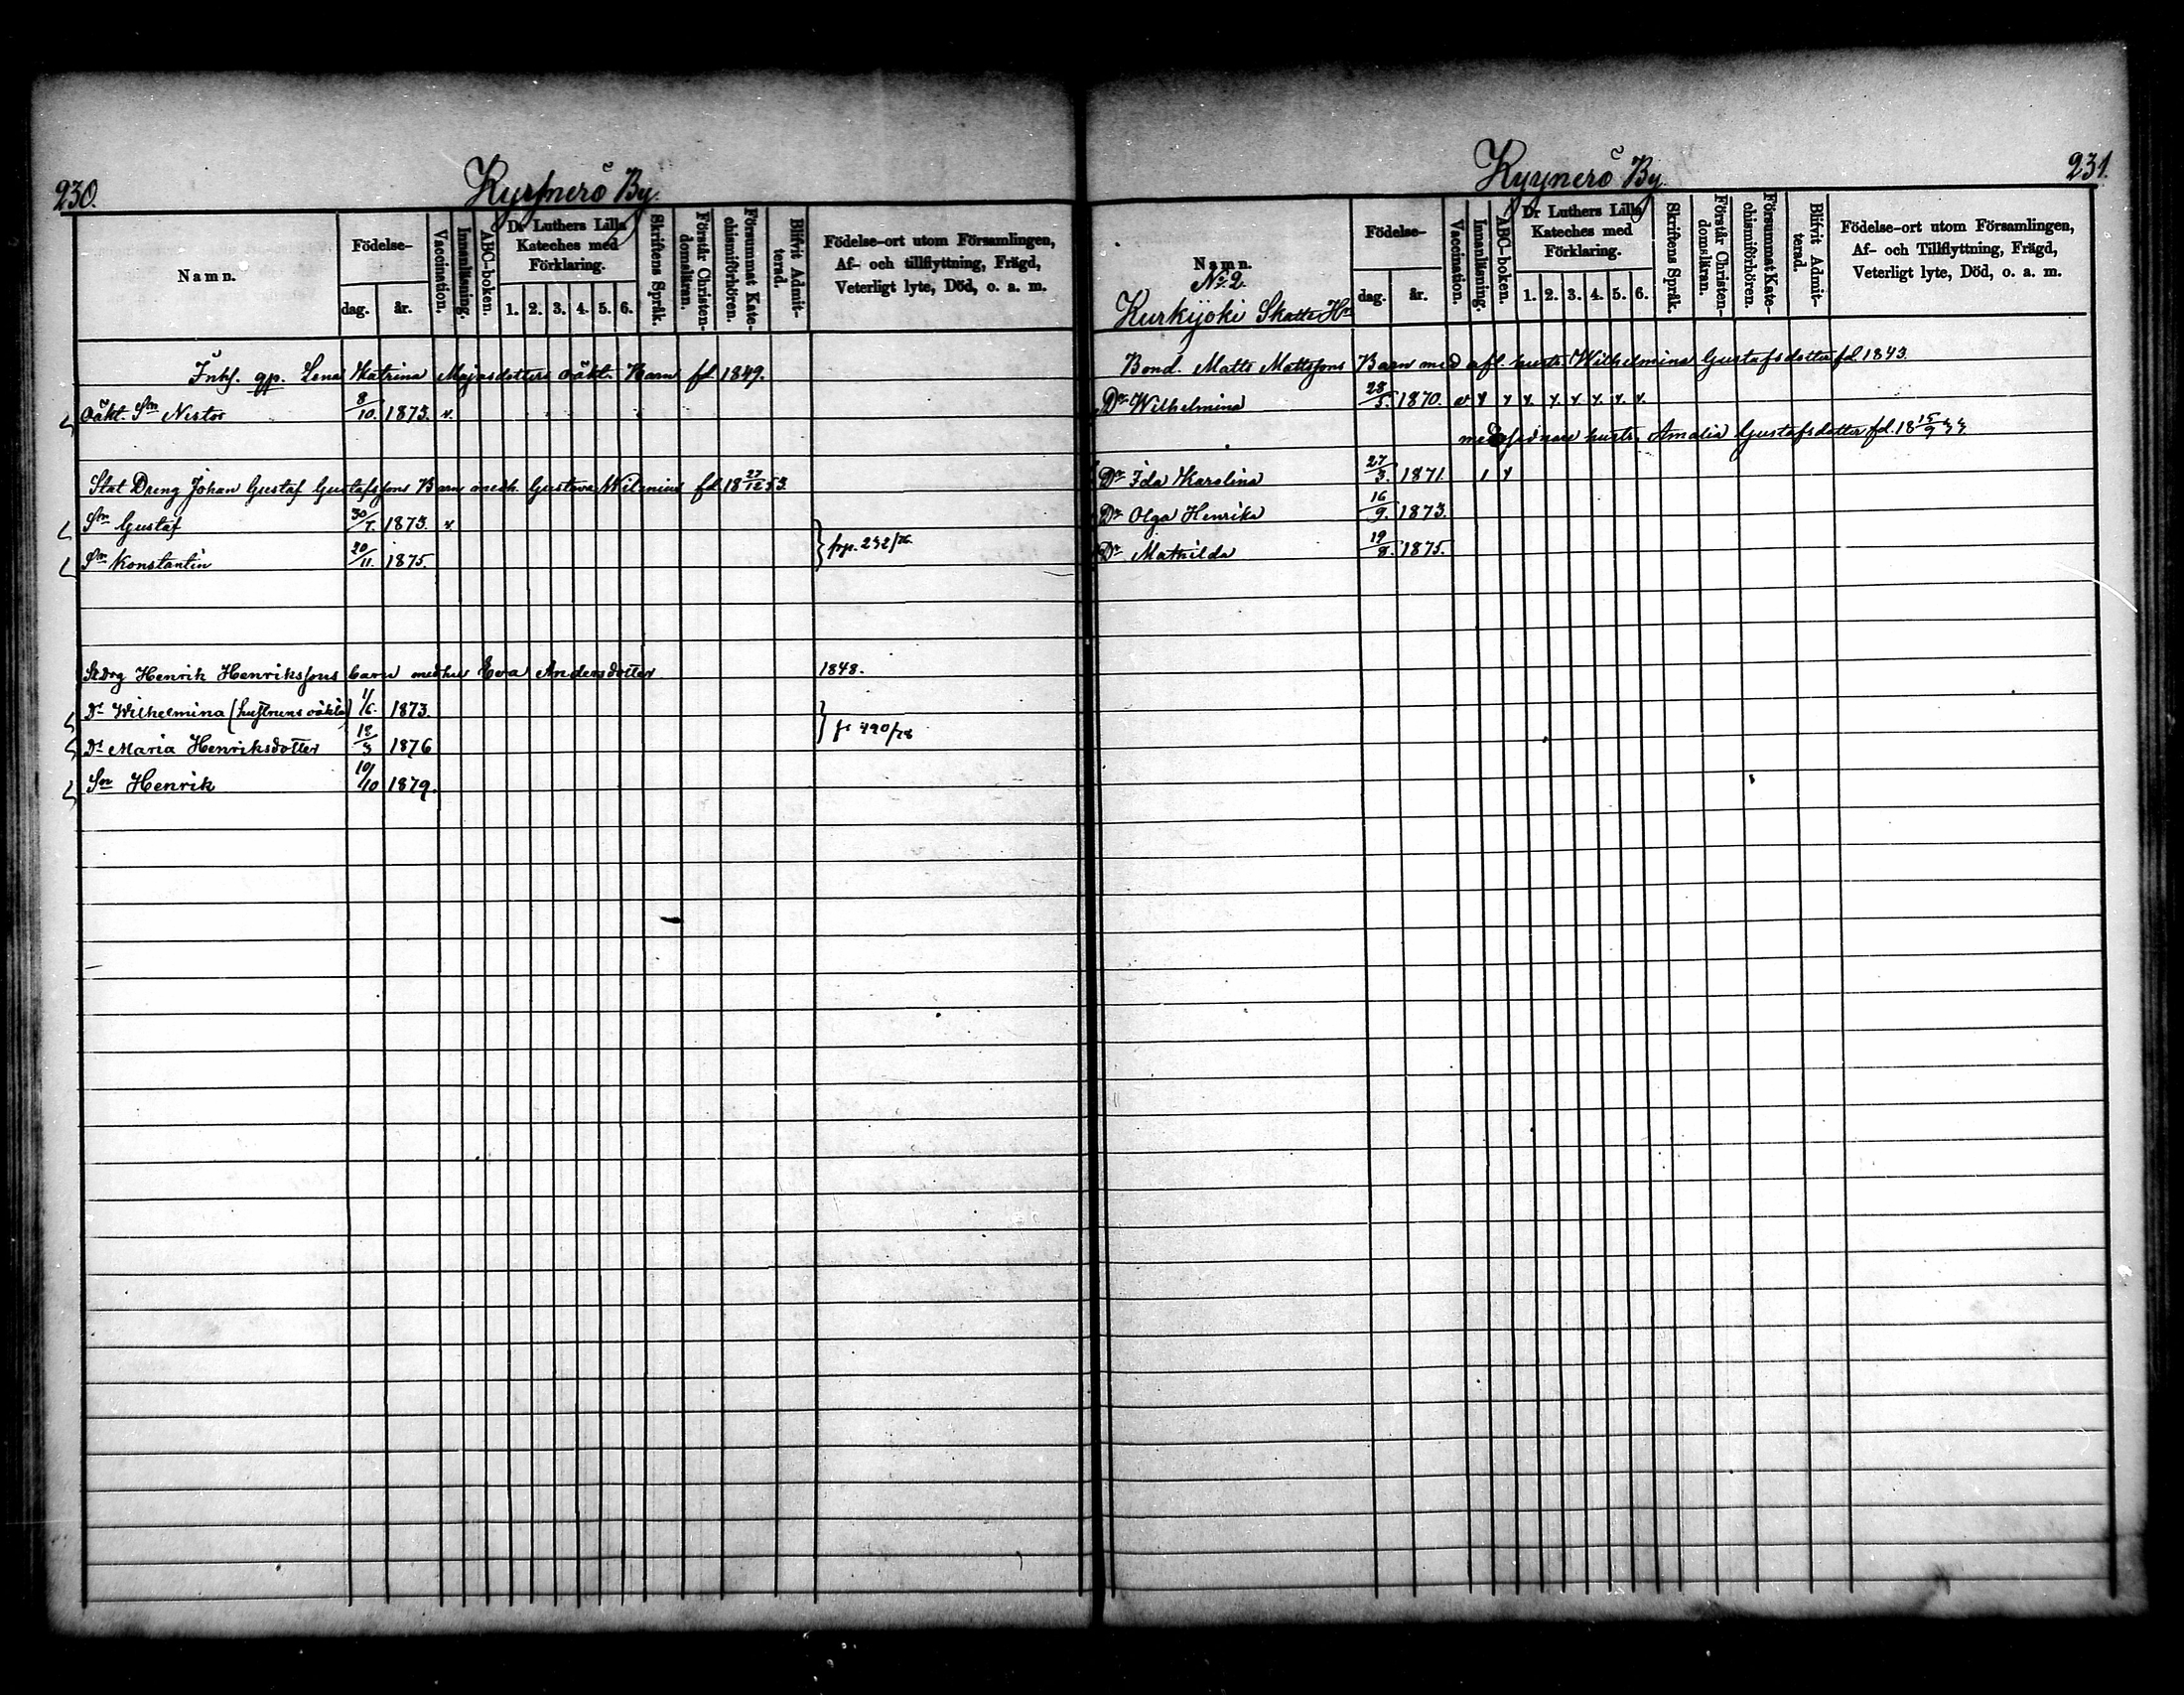 230.
Kyynerö By.
Namn.
Födelse-
dag.
år.
Vaccination.
Innanläsning.
ABC-boken.
Dr Luthers Lilla
Kateches med
Förklaring.
1. 2. 3. 4. 5. 6.
Skriftens Språk.
Förstår Christen-
domsläran.
Försummat Kate-
chismiförhören.
Blifvit Admit-
terad.
Födelse-ort utom Församlingen,
Af- och tillflyttning, Frägd,
Veterligt lyte, Död, o. a. m.
Inhs. qp. Lena Katrina Majasdotters oäkt. Barn fd 1849.
oäkt. Sn Nestor 8/10. 1873. v.
Stat Dreng Johan Gustaf Gustafssons Barn medh. Gustava fd. 18 27/12 53.
Sn Gustaf 1873. v
Sn Konstantin 20/11. 1875.
frp. 232/76
Henrik Henrikssons barn med hu Eva Andersdotter 1848.
Dr Wilhelmina (hustruns oäkta) 1/6 1873.
Dr Maria Henriksdotter 12/3 1876
fr 490/78
Sn Henrik 10/10 1879.
231.
Kyynerö By.
Namn.
No 2.
Kurkijoki Skatte Hn
Födelse-
dag.
år.
Vaccination.
Innanläsning.
ABC-boken.
Dr Luthers Lilla
Kateches med
Förklaring.
1. 2. 3. 4. 5. 6.
Skriftens Språk.
Förstår Christen-
domsläran.
Försummat Kate-
chismiförhören.
Blifvit Admit-
terad.
Födelse-ort utom Församlingen,
Af- och Tillflyttning, Frägd,
Veterligt lyte, Död, o. a. m.
Bond. Matts Mattssons Barn med afl. hustr. Wilhelmina Gustafsdotter fd 1843.
Dr Wilhelmina 28/5. 1870. v y y y. y. y. y. y. v.
med sednare hustr. Amalia Gustafsdotter fd. 18 15/9 44.
Dr Ida Karolina 27/3. 1871. 1 y
Dr Olga Henrika 16/9. 1873.
Dr Mathilda 19/8. 1875.